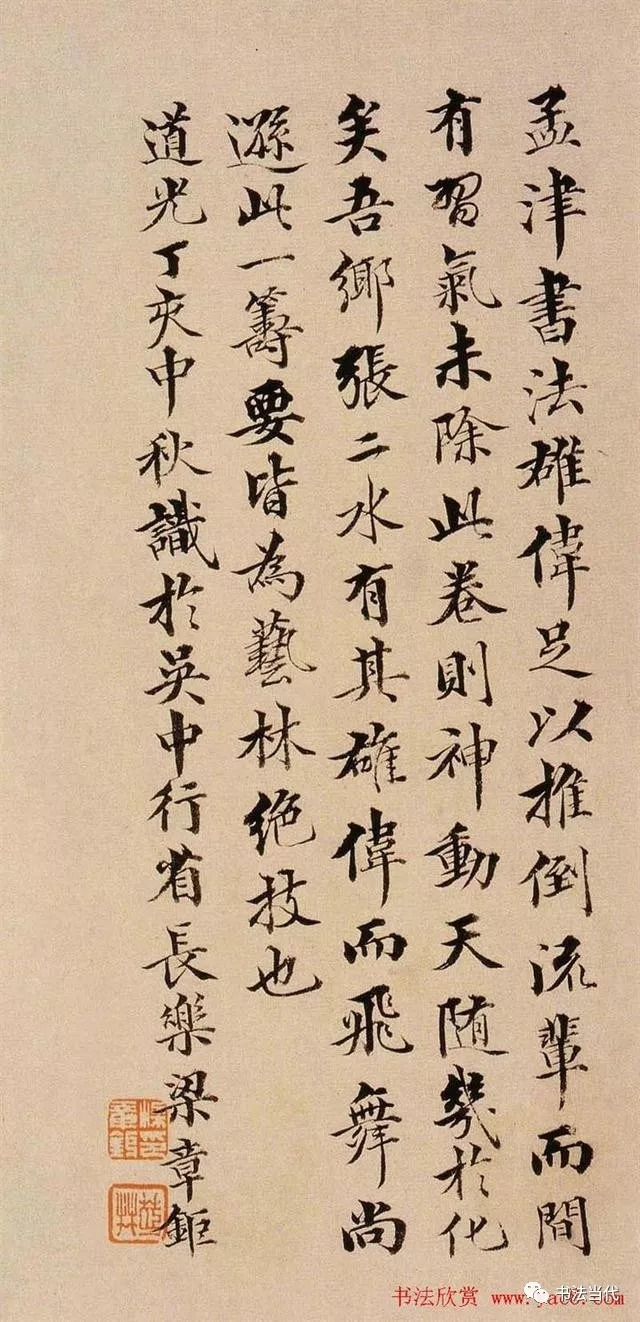 孟津書法雄偉足以推倒流輩而間
有習氣未除此卷則神動天随幾於化
矣吾鄉張二水有其雄偉而飛舞尚
遜此一籌要皆為藝林絕技也
道光丁亥中秋識於吳中行省長樂梁章鉅
书法当代
书法欣赏 www.yac8.com